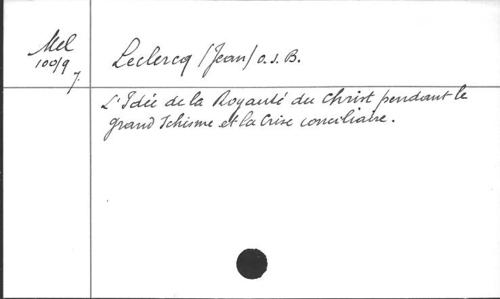 Mel
100/9
7
Leclercq (Jean) O.S.B.
L'Idée de la Royauté du Christ pendant le
grand Schisme et la Crise conciliaire.